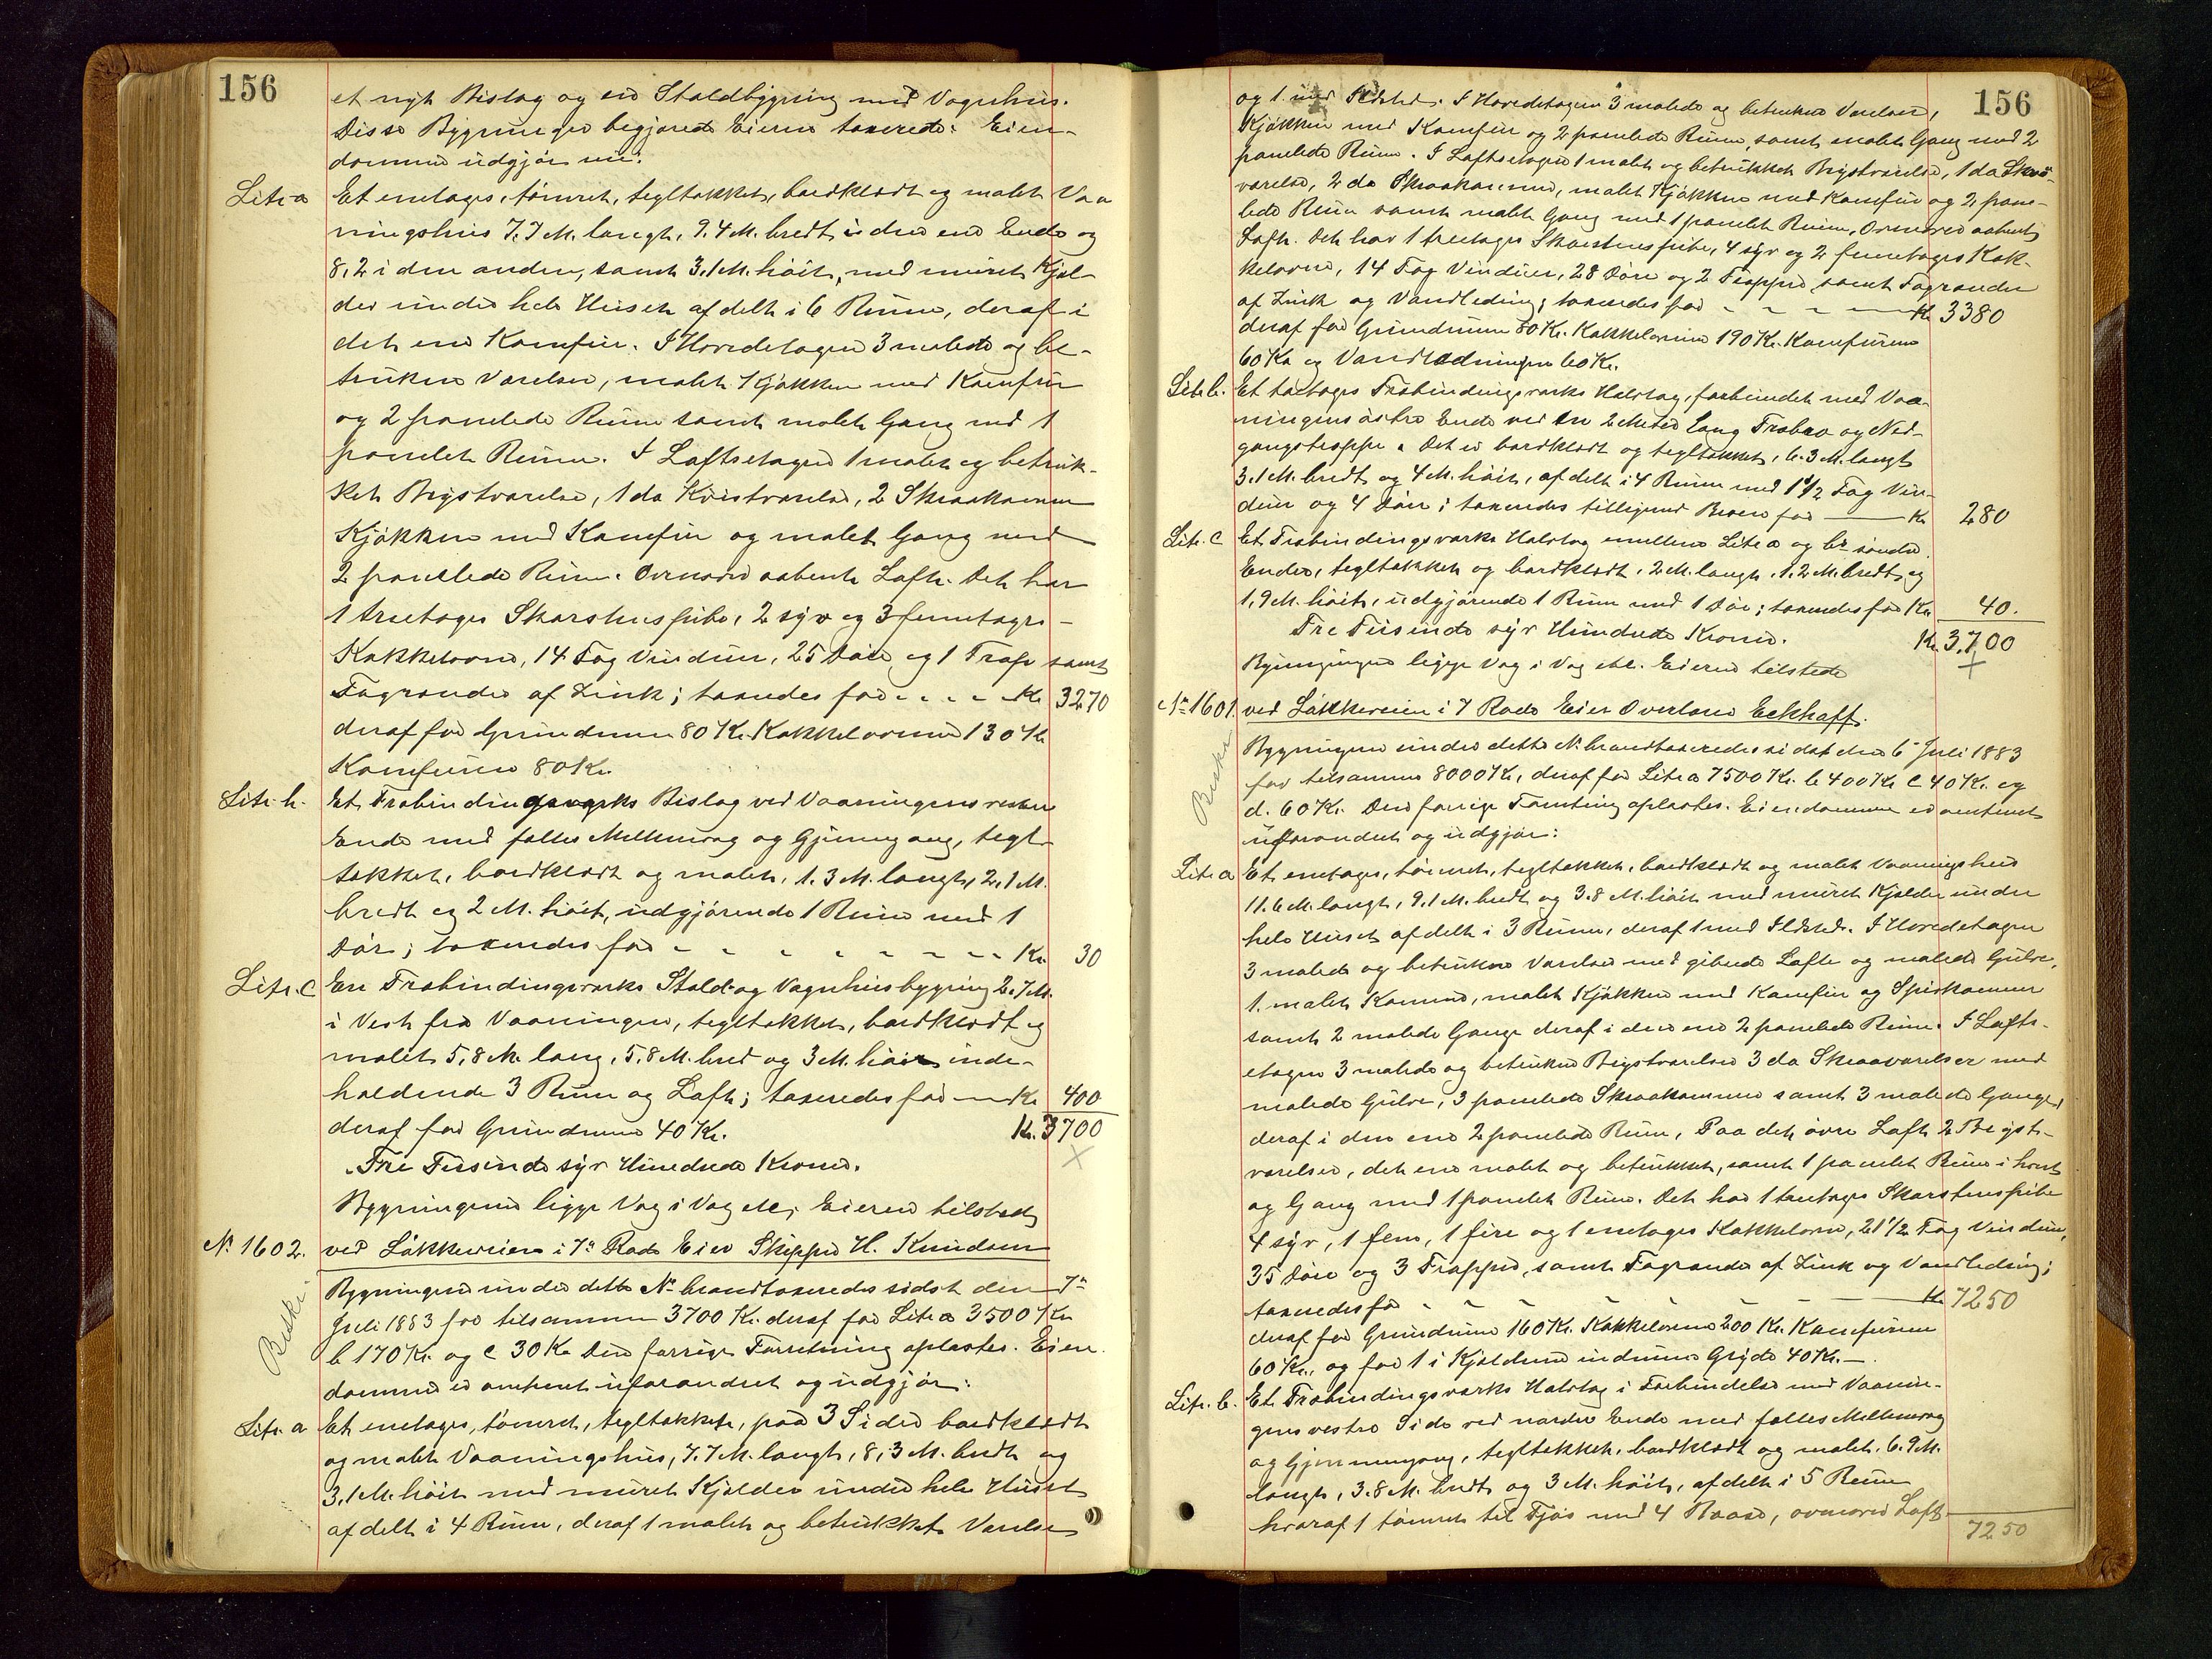 156
et nyt Bislag og en Staldbygning med Vognhus.
Disse Bygninger begjærede Eieren taxerede. Eien-
dommen udgjør nu:
Litr. a Et enetages, tømret, tegltækket, bordklædt og malet Vaa
ningshus 7.7 M. langt, 9.4 M. bredt i den ene Ende og
8.2 i den anden, samt 3.1 M. höit, med muret Kjæl-
der under hele Huset afdelt i 6 Rum, deraf i
det ene Komfür. I Hovedetagen 3 malede og be-
trukne Værelser, malet Kjøkken med Komfür
og 2 panelede Rum samt malet Gang med 1
panelet Rum. I Loftsetagen 1 malet og betruk-
ket Brystværelse, 1 do Kvistværelse, 2 Skraakamre
Kjøkken med Komfür og malet Gang med
2 panelede Rum. Ovenover aabent Loft. Det har
1 treetages Skorstenspibe, 2 syv og 3 femetages-
Kakkelovne, 14 Fag Vinduer, 25 Döre og 1 Trappe samt
Tagrender af Zink; taxeredes for - - - - Kr. 3270
deraf for Grundmur 80 Kr. Kakkelovnene 130 Kr
Komfürene 80 Kr.
Litr. b. Et Træbindingsværks Bislag ved Vaaningens vestre
Ende med fælles Mellemvæg og Gjennemgang, tegl-
tækket, bordklædt og malet, 1.3 M. langt, 2.1 M.
bredt og 2 M. höit, udgjörende 1 Rum med 1
Dör; taxeredes for - - - - - - - - Kr. 30
Litr. C En Træbindingsværks Stald- og Vognhusbygning 2.7 M.
i Vest fra Vaaningen, tegltækket, bordklædt og
malet 5,8 M. lang, 5,8 M. bred og 3 M. höi inde-
holdende 3 Rum og Loft; taxeredes for — Kr. 400
deraf for Grundmur 40 Kr. Kr. 3700
Tre Tusinde syv Hundrede Kroner.
Bygningerne ligge Væg i Væg etc. Eieren tilstede
No 1602. ved Løkkeveien i 7de Rode Eier Skipper H. Knudsen
Bygningerne under dette No brandtaxeredes sidst den 7de
Juli 1883 for tilsammen 3700 Kr. deraf for Litr. a 3500 Kr
b 170 Kr. og C 30 Kr. Den forrige Forretning oplæstes. Eien
dommen er omtrent uforandret og udgjør:
Litr. a Et enetages, tømret, tegltækket, paa 3 Sider bordklædt
og malet Vaaningshus, 7.7 M. langt, 8,3 M. bredt og
3.1 M. höit med muret Kjælder under hele Huset
afdelt i 4 Rum, deraf 1 malet og betrukket Værelse
156
og 1 med Ildsted. I Hovedetagen 3 malede og betrukne Værelser,
Kjøkken med Komfür og 2 panelede Rum, samt malet Gang med 2
panelede Rum. I Loftsetagen 1 malet og betrukket Brystværelse, 1 do Skraa-
værelse, 2 do Skraakamre, malet Kjøkken med Komfür og 2 pane-
lede Rum samt malet Gang med 1 panelet Rum, Ovenover aabent
Loft. Det har 1 treetages Skorstenspibe, 4 syv og 2 femetages Kak-
kelovne, 14 Fag Vinduer, 28 Döre og 2 Trapper samt Tagrender
af Zink og Vandledning; taxeredes for - - - - Kr. 3380
deraf for Grundmur 80 Kr. Kakkelovnene 190 Kr. Komfürene
60 Kr og Vandledningen 60 Kr.
Litr. b. Et toetages Træbindingsværks Halvtag, forbundet med Vaa-
ningens östre Ende ved en 2 Meter lang Træbro og Ned-
gangstrappe. Det er bordklædt og tegltækket, 6.3 M. langt
3.1 M. bredt og 4 M. höit, afdelt i 4 Rum med 1 1/2 Fag Vin-
duer og 4 Döre; taxeredes tilligemed Broen for — Kr. 280
Litr. C Et Træbindingsværks Halvtag imellem Litr. a og b's söndre
Ender, tegltækket og bordklædt, 2 M. langt, 1.2 M. bredt og
1,9 M. höit, udgjörende 1 Rum med 1 Dör; taxeredes for Kr. 40.
Tre Tusinde syv Hundrede Kroner. Kr. 3700
Bygningerne ligge Væg i Væg etc. Eieren tilstede
No 1601. ved Løkkeveien i 7 Rode Eier Overlærer Eckhoff.
Bygningerne under dette No brandtaxeredes sidst den 6te Juli 1883
for tilsammen 8000 Kr., deraf for Litr. a 7500 Kr. b 400 Kr C 40 Kr. og
d. 60 Kr. Den forrige Forretning oplæstes. Eiendommen er omtrent
uforandret og udgjør:
Litr. a Et enetages, tømret, tegltækket, bordklædt og malet Vaaningshus
11.6 M. langt, 9.1 M. bredt og 3.8 M. höit med muret Kjælder under
hele Huset afdelt i 3 Rum, deraf 1 med Ildsted. I Hovedetagen
3 malede og betrukne Værelser med gibsede Lofte og malede Gulve,
1 malet Kammer, malet Kjøkken med Komfür og Spisekammer
samt 2 malede Gange deraf i den ene 2 panelede Rum. I Lofts-
etagen 3 malede og betrukne Brystværelser 3 do Skraaværelser med
malede Gulve, 3 panelede Skraakamre samt 3 malede Gange,
deraf i den ene 2 panelede Rum, Paa det övre Loft 2 Bryst-
værelser, det ene malet og betrukket, samt 1 panelet Rum i hvert
og Gang med 1 panelet Rum. Det har 1 treetages Skorstenspibe
4 syv, 1 fem, 1 fire og 1 enetages Kakkelovn, 21 1/2 Fag Vinduer,
35 Döre og 3 Trapper, samt Tagrender af Zink og Vandledning;
taxeredes for - - - - - - Kr. 7250
deraf for Grundmur 160 Kr. Kakkelovnene 200 Kr. Komfürene
60 Kr., og for 1 i Kjælderen indmuret Gryde 40 Kr.—.
Litr. b. Et Træbindingsværks Halvtag i Forbindelse med Vaanin-
gens vestre Side ved nordre Ende med fælles Mellemvæg
og Gjennemgang, tegltækket, bordklædt og malet, 6.9 M.
langt, 3.8 M. bredt og 3 M. höit, afdelt i 5 Rum
hvoraf 1 tømret til Fjøs med 4 Baase, ovenover Loft
7250